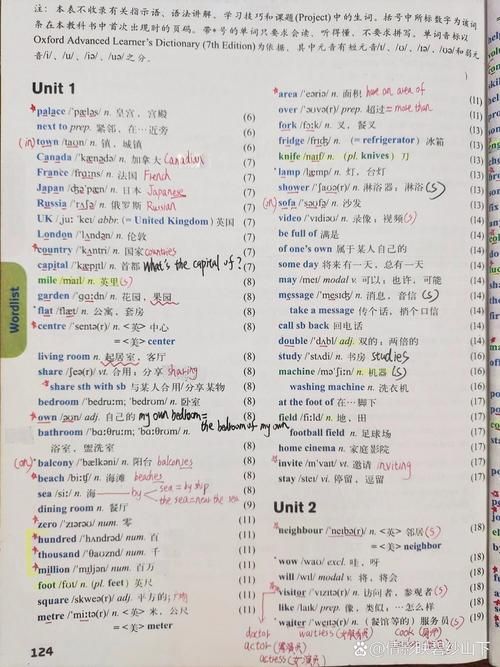 注：本表不收录有关指示语、语法讲解、学习技巧和课题(Project)中的生词。括号中所标数字为该词
条在本教科书中首次出现时的页码。带*号的单词只要求会读、听得懂，不要求拼写。单词音标以
Oxford Advanced Learner's Dictionary (7th Edition)为依据，其中元音有短元音/ɪ/、/ʊ/、/ɪə/、/ʊə/和弱元
音/i/、/u/、/iə/、/uə/之分。
Unit 1
palace /ˈpæləs/ n. 皇宫，宫殿 (6)
next to prep. 紧邻，在…近旁 (6)
(in) town /taʊn/ n. 镇，城镇 (6)
Canada /ˈkænədə/ n. 加拿大 (7)
France /frɑːns/ n. 法国 French (7)
Japan /dʒəˈpæn/ n. 日本 Japanese (7)
Russia /ˈrʌʃə/ n. 俄罗斯 Russian (7)
UK /ˌjuː ˈkeɪ/ abbr. (= United Kingdom) 英国 (7)
London /ˈlʌndən/ n. 伦敦 (7)
country /ˈkʌntri/ n. 国家 countries (7)
capital /ˈkæpɪtl/ n. 首都 what's the capital of? (7)
mile /maɪl/ n. 英里(s) (7)
garden /ˈɡɑːdn/ n. 花园，果园 (7)
flat /flæt/ n. 公寓，套房 (7)
centre /ˈsentə(r)/ n. <英> 中心 (7)
=<美> center
living room n. 起居室，客厅 (8)
share /ʃeə(r)/ vt. 合用；分享 sharing (8)
share sth with sb 与某人合用/分享某物
bedroom /ˈbedruːm; ˈbedrʊm/ n. 卧室 (8)
own /əʊn/ adj. 自己的 my own bedroom= (8)
the bedroom of my own
bathroom /ˈbɑːθruːm; ˈbɑːθrʊm/ n. (8)
浴室，盥洗室
(on) balcony /ˈbælkəni/ n. 阳台 balconies (8)
beach /biːtʃ/ n. 海滩 beaches (8)
sea /siː/ n. 海 by sea = by ship (8)
the sea = near the sea
dining room n. 餐厅 (9)
zero /ˈzɪərəʊ/ num. 零 (11)
hundred /ˈhʌndrəd/ num. 百 (11)
thousand /ˈθaʊznd/ num. 千 (11)
million /ˈmɪljən/ num. 百万 (11)
foot /fʊt/ n. (pl. feet) 英尺 (11)
square /skweə(r)/ adj. 平方的 (11)
metre /ˈmiːtə(r)/ n. <英> 米，公尺 (11)
=<美> meter
area /ˈeəriə/ n. 面积 have an area of (11)
over /ˈəʊvə(r)/ prep. 超过 = more than (11)
fork /fɔːk/ n. 叉，餐叉 (11)
fridge /frɪdʒ/ n. (= refrigerator) 冰箱 (11)
knife /naɪf/ n. (pl. knives) 刀 (11)
lamp /læmp/ n. 灯，台灯 (11)
shower /ˈʃaʊə(r)/ n. 淋浴器；淋浴(s) (11)
(on) sofa /ˈsəʊfə/ n. 沙发 (11)
video /ˈvɪdiəʊ/ n. 录像；视频(s) (11)
be full of 满是 (12)
of one's own 属于某人自己的 (13)
some day 将来有一天，总有一天 (13)
may /meɪ/ modal v. 可以；也许，可能 (14)
message /ˈmesɪdʒ/ n. 消息，音信 (s) (14)
take a message 传个话，捎个口信 (14)
call sb back 回电话 (14)
double /ˈdʌbl/ adj. 双的；两倍的 (14)
study /ˈstʌdi/ n. 书房 studies (16)
machine /məˈʃiːn/ n. 机器(s) (16)
washing machine n. 洗衣机 (16)
at the foot of 在…脚下 (16)
field /fiːld/ n. 地，田 (16)
football field n. 足球场 (16)
home cinema n. 家庭影院 (16)
invite /ɪnˈvaɪt/ vt. 邀请 inviting (16)
stay /steɪ/ vi. 停留，逗留 (16)
Unit 2
neighbour /ˈneɪbə(r)/ n. <英> 邻居(s) (18)
=<美> neighbor
wow /waʊ/ excl. 哇，呀 (18)
will /wɪl/ modal v. 将，将会 (18)
visitor /ˈvɪzɪtə(r)/ n. 访问者，参观者(s) (18)
like /laɪk/ prep. 像，类似；…怎么样 (18)
waiter /ˈweɪtə(r)/ n. (餐馆等的) 服务员(s) (19)
doctor
actor
actress
waitress
cook
Wordlist
124